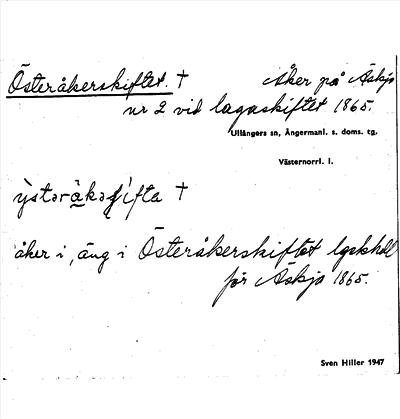 Österåkerskiftet. † Åker på Äskja
nr 2 vid lagaskiftet 1865.
Ullångers sn, Ångermanl. s. doms. tg.
Västernorrl. l.
åker i, äng i Österåkerskiftet
för Äskja 1865.
Sven Hiller 1947